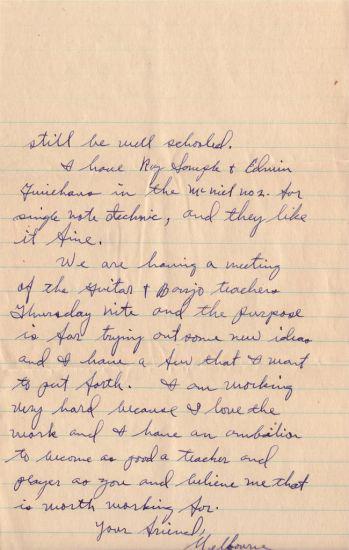 still be well schooled.
I have Roy & Edwin
in the McNiel no 2. for
single note technic, and they like
it fine.
We are having a meeting
of the guitar & Banjo teachers
Thursday nite and the purpose
is for trying out some new ideas
and I have a few that I want
to put forth. I am working
very hard because I love the
work and I have an ambition
to become as good a teacher and
player as you and believe me that
is worth working for.
Your friend,
Melbourne